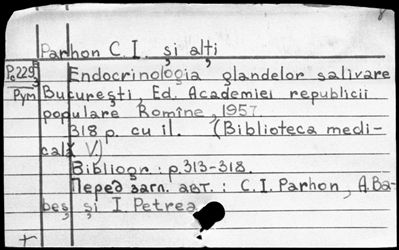 Parhon C. I. și alți
P₀229₅ Endocrinologia glandelor salivare
Рум București, Ed. Academiei republicii
populare Romîne, 1957.
318 p. cu il. (Biblioteca medi-
cală V.)
Bibliogr: p.313-318.
Перед загл. авт.: C. I. Parhon, A. Ba-
beș și I. Petrea
+